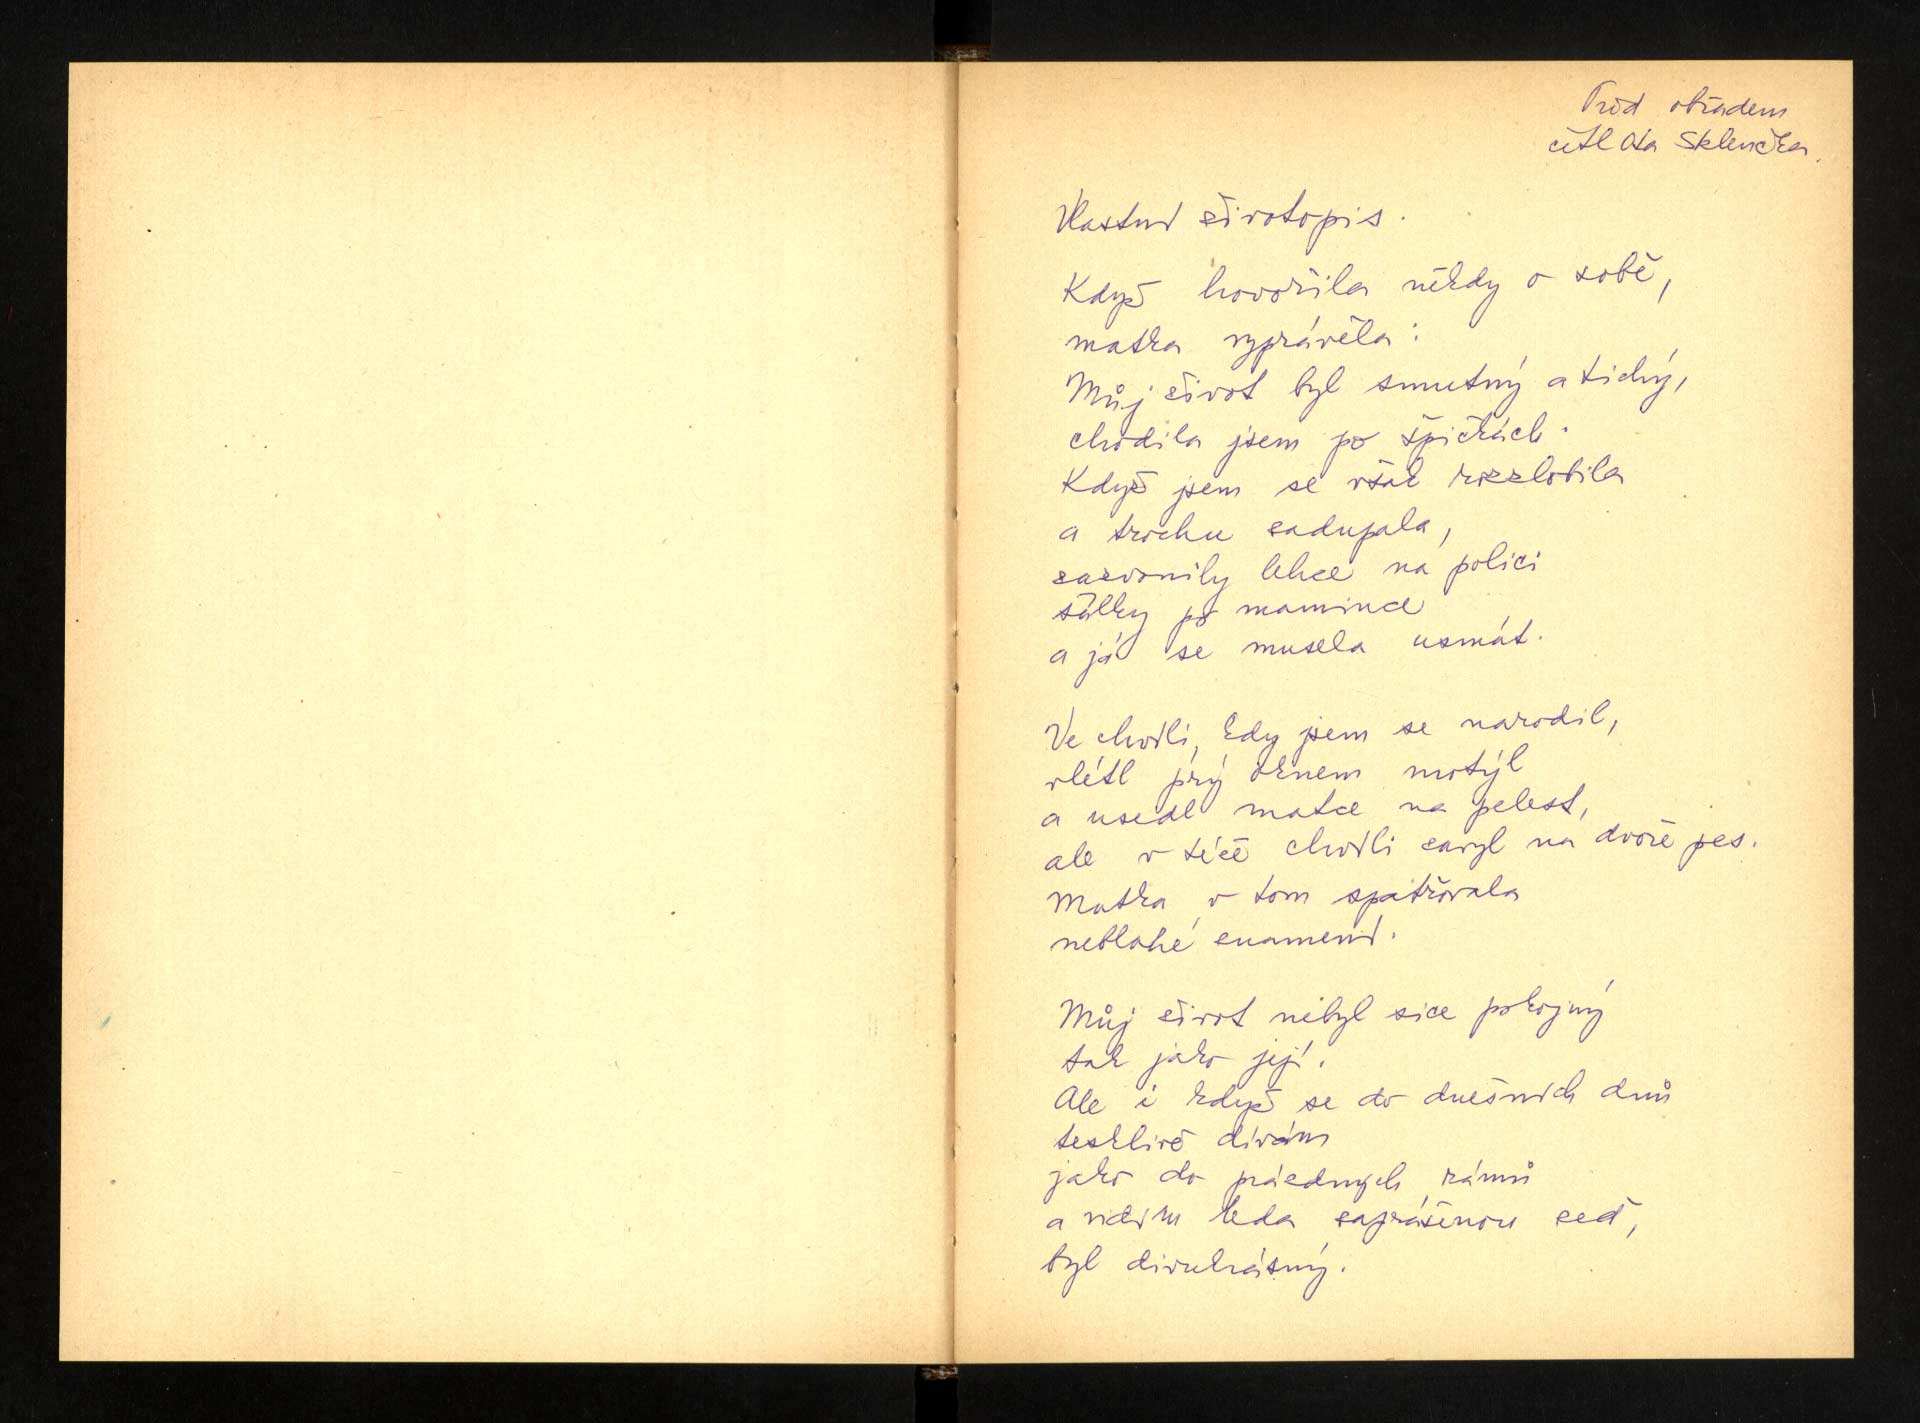 Před obřadem
četl Ota Sklenčka.
Vlastní životopis.
Když hovořila někdy o sobě,
matka vyprávěla:
Můj život byl smutný a tichý,
chodila jsem po špičkách.
Když jsem se však rozzlobila
a trochu zadupala,
zazvonily lehce na polici
šálky po mamince
a já se musela usmát.
Ve chvíli, kdy jsem se narodil,
vlétl prý oknem motýl
a usedl matce na pelest,
ale v téže chvíli zavyl na dvoře pes.
Matka v tom spatřovala
neblahé znamení.
Můj život nebyl sice pokojný
tak jako její.
Ale i když se do dnešních dnů
tesklivě dívám
jako do prázdných rámů
a vidím leda zaprášenou zeď,
byl divukrásný.